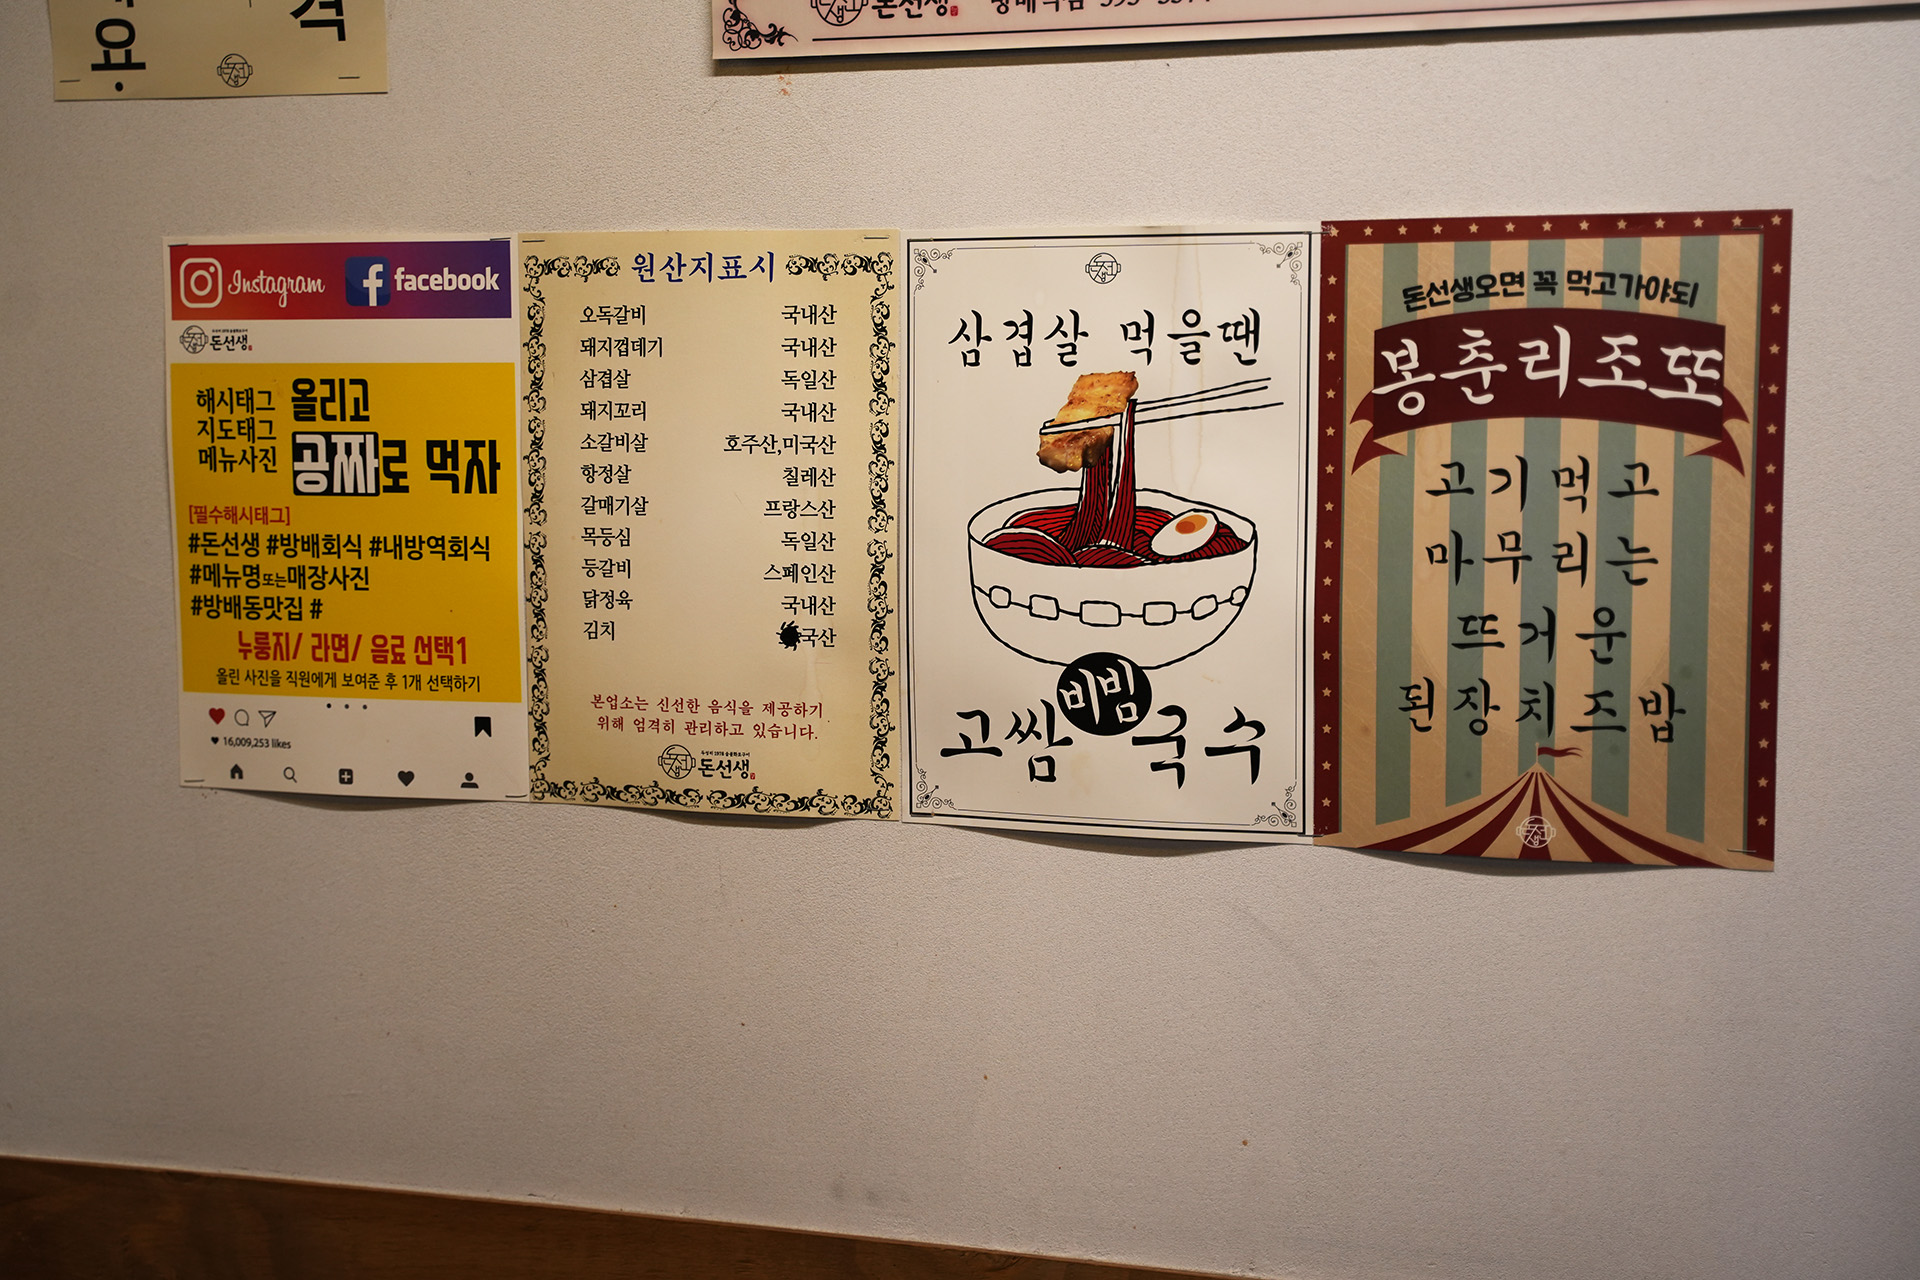 요.
격
돈선생
Instagram facebook
돈선생
해시태그
지도태그
메뉴사진
올리고
공짜로 먹자
[필수해시태그]
#돈선생 #방배회식 #내방역회식
#메뉴명또는매장사진
#방배동맛집 #
누룽지/ 라면/ 음료 선택1
올린 사진을 직원에게 보여준 후 1개 선택하기
16,009,253 likes
원산지표시
오독갈비 국내산
돼지껍데기 국내산
삼겹살 독일산
돼지꼬리 국내산
소갈비살 호주산,미국산
항정살 칠레산
갈매기살 프랑스산
목등심 독일산
등갈비 스페인산
닭정육 국내산
김치 국산
본업소는 신선한 음식을 제공하기
위해 엄격히 관리하고 있습니다.
돈선생
삼겹살 먹을땐
비빔
고쌈 국수
돈선생오면 꼭 먹고가야되
봉춘리조또
고기먹고
마무리는
뜨거운
된장치즈밥